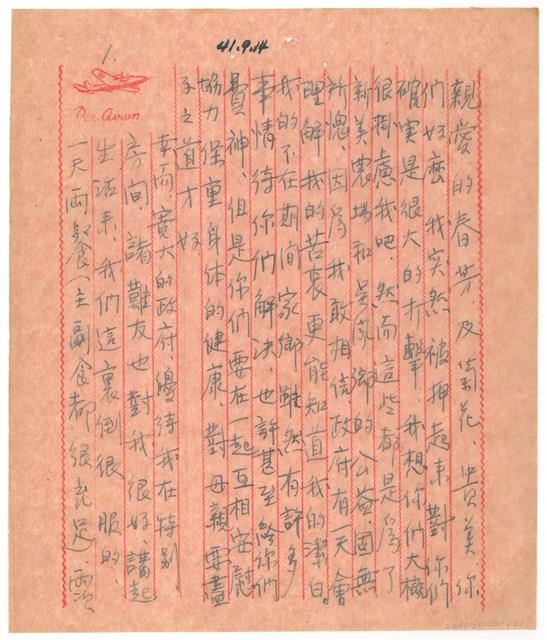 41.9.14
1.
Par Avion
親愛的春芳、及菊花、貴美、你
们好麼、我突然被押起來、對你们
確實是很大的打擊、我想你们大概
很掛慮我吧、然而這些都是為了
新美農場和吳鳳鄉的公益、固無
所愧、因為我敢相信政府有一天會
理解我的苦衷更能知道我的潔白。
我的不在期间家鄉雖然有許多
事情待你们解決、也許甚至終你们
費神、但是你们要在一起互相安慰
協力保重身体的健康、對母親要盡
子之道才好
幸而、寬大的政府、優待我在特別
房间、諸難友也對我很好、講起
生活來、我們這裏倒很 服的、
一天兩餐（主副食都很充足、